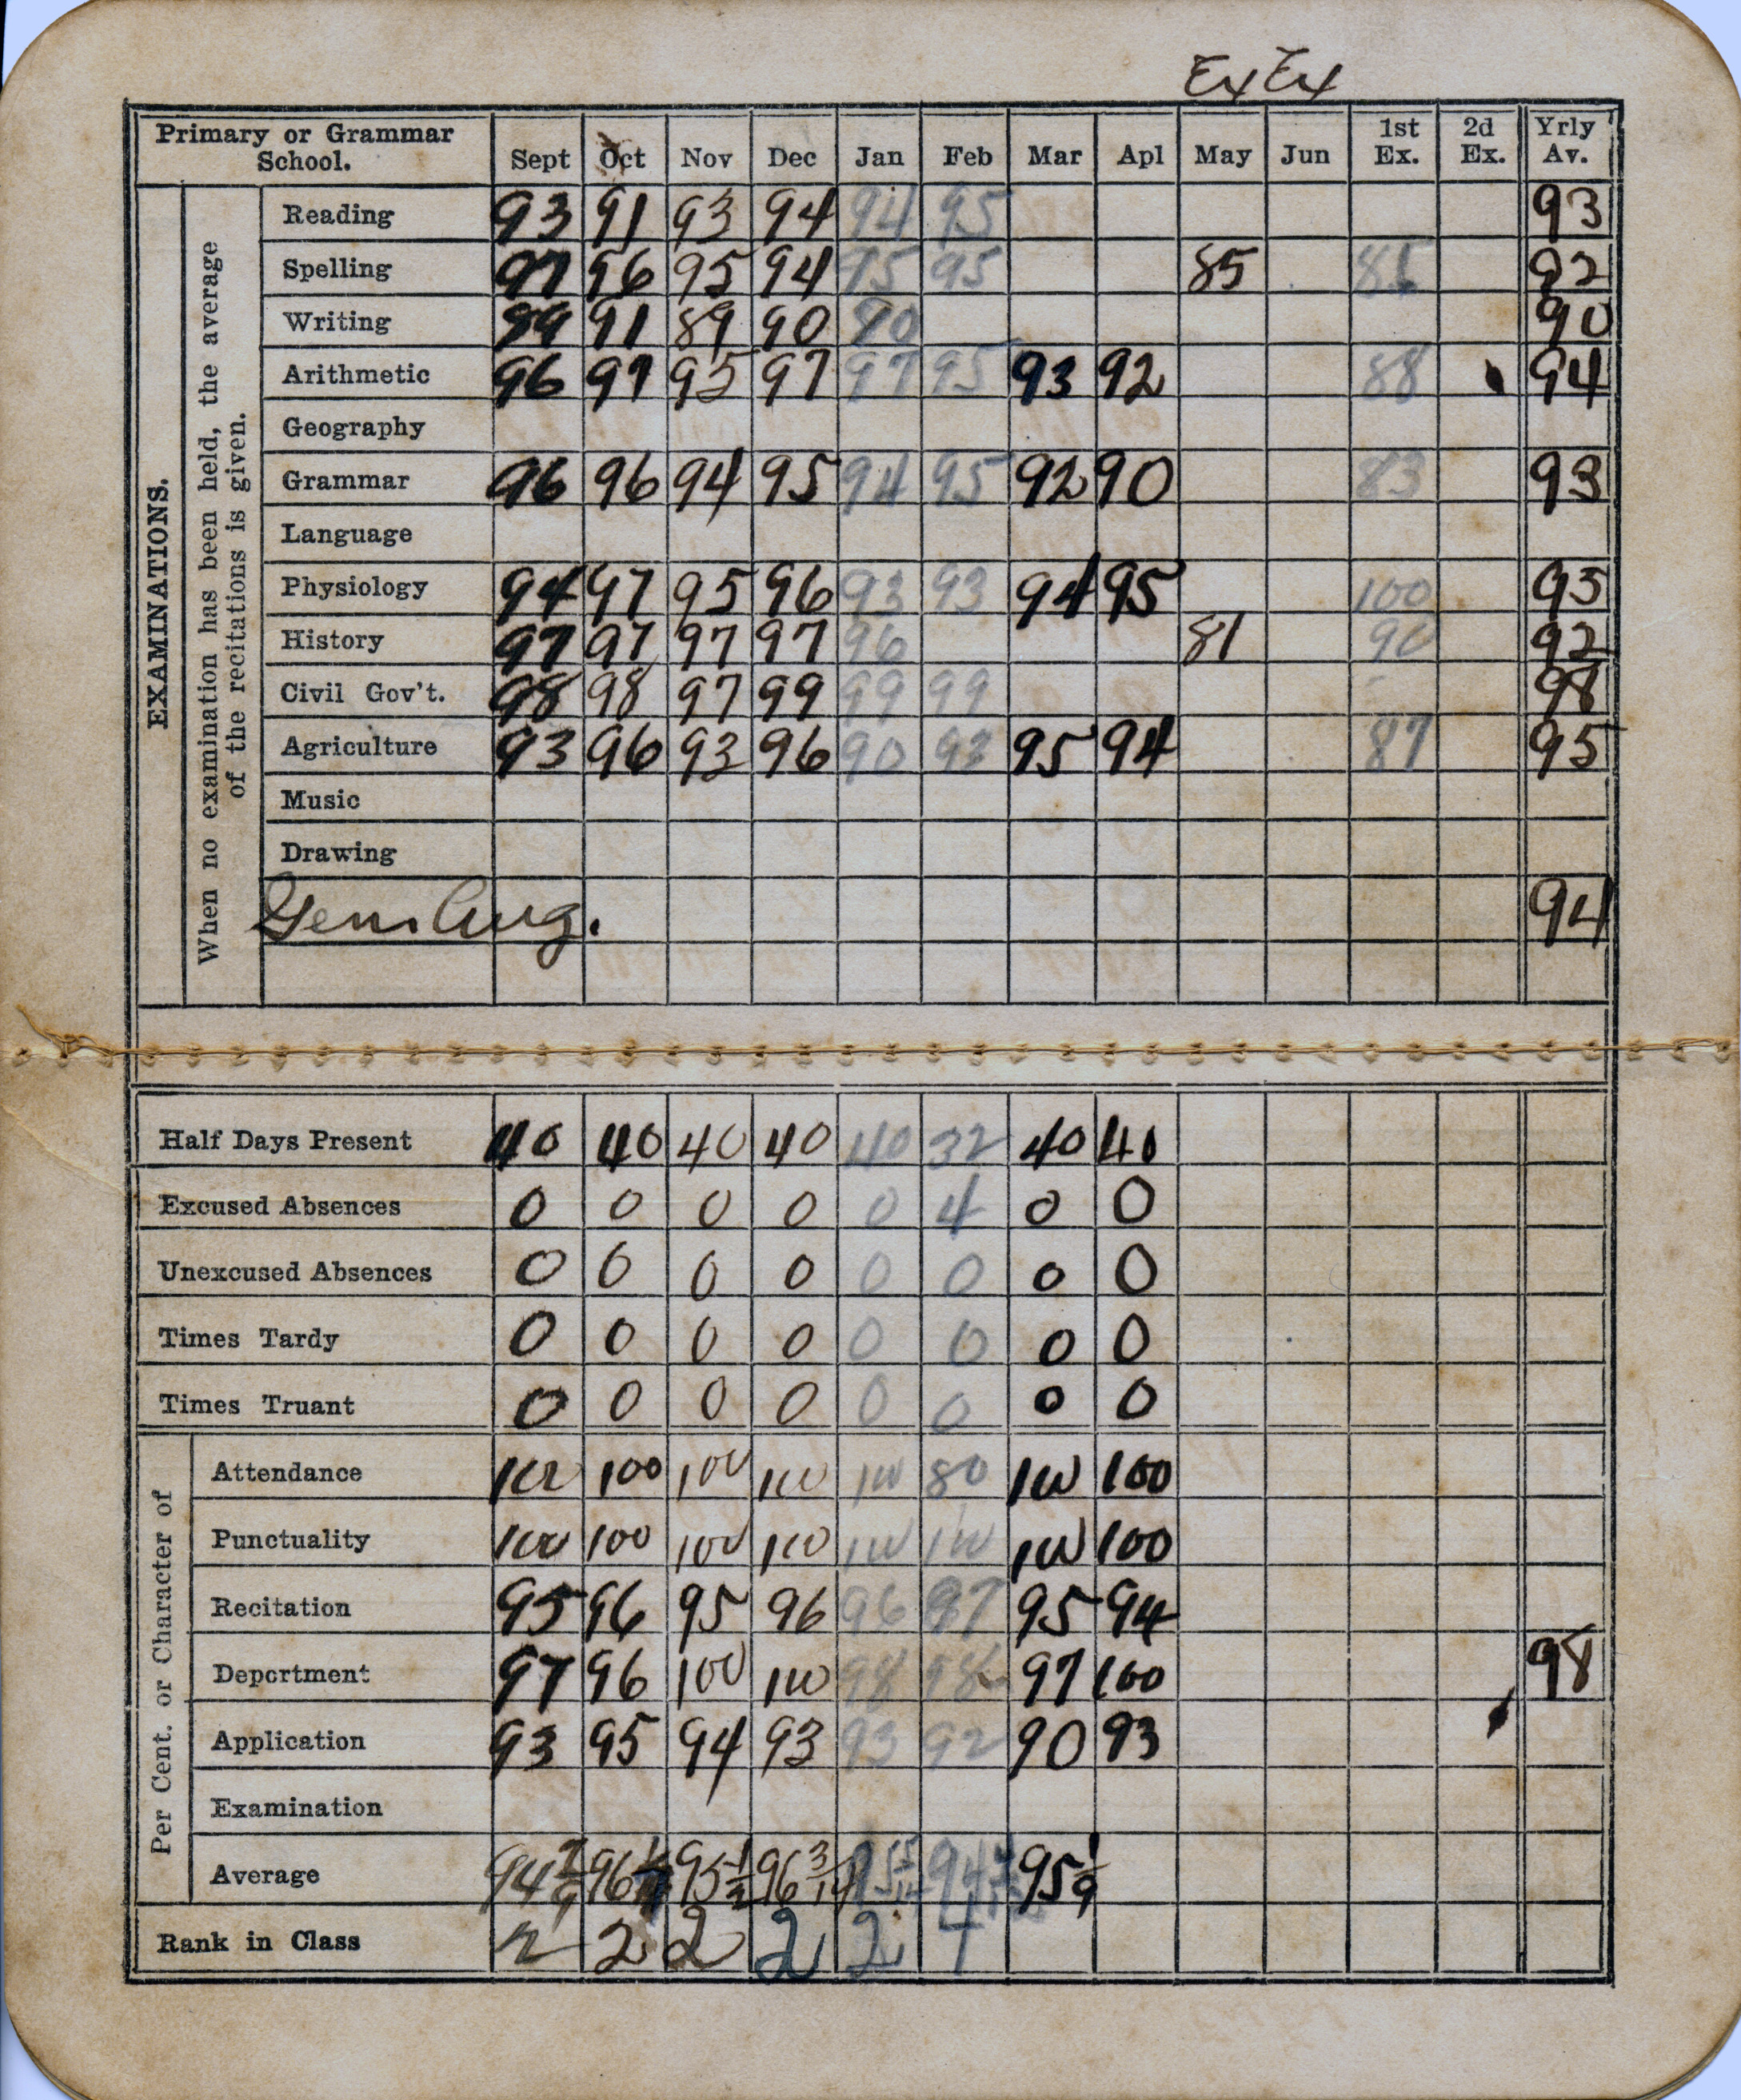 Ex Ex
Primary or Grammar School. Sept Oct Nov Dec Jan Feb Mar Apl May Jun 1st Ex. 2d Ex. Yrly Av.
EXAMINATIONS.
When no examination has been held, the average
of the recitations is given.
Reading 93 91 93 94 94 95 93
Spelling 97 96 95 94 95 95 85 92
Writing 89 91 89 90 90 90
Arithmetic 96 97 95 97 97 95 93 92 88 94
Geography
Grammar 96 96 94 95 94 95 92 90 83 93
Language
Physiology 94 97 95 96 93 93 94 95 100 95
History 97 97 97 97 96 81 90 92
Civil Gov't. 98 98 97 99 99 99 98
Agriculture 93 96 93 96 90 93 95 94 87 95
Music
Drawing
Gen. Avg. 94
Half Days Present 40 40 40 40 40 32 40 40
Excused Absences 0 0 0 0 0 4 0 0
Unexcused Absences 0 0 0 0 0 0 0 0
Times Tardy 0 0 0 0 0 0 0 0
Times Truant 0 0 0 0 0 0 0 0
Per Cent. or Character of
Attendance 100 100 100 100 100 80 100 100
Punctuality 100 100 100 100 100 100 100 100
Recitation 95 96 95 96 96 97 95 94
Deportment 97 96 100 100 98 98 97 100 98
Application 93 95 94 93 93 92 90 93
Examination
Average 94 7/9 96 95 1/2 96 3/14 95 1/9
Rank in Class 2 2 2 2 2 4